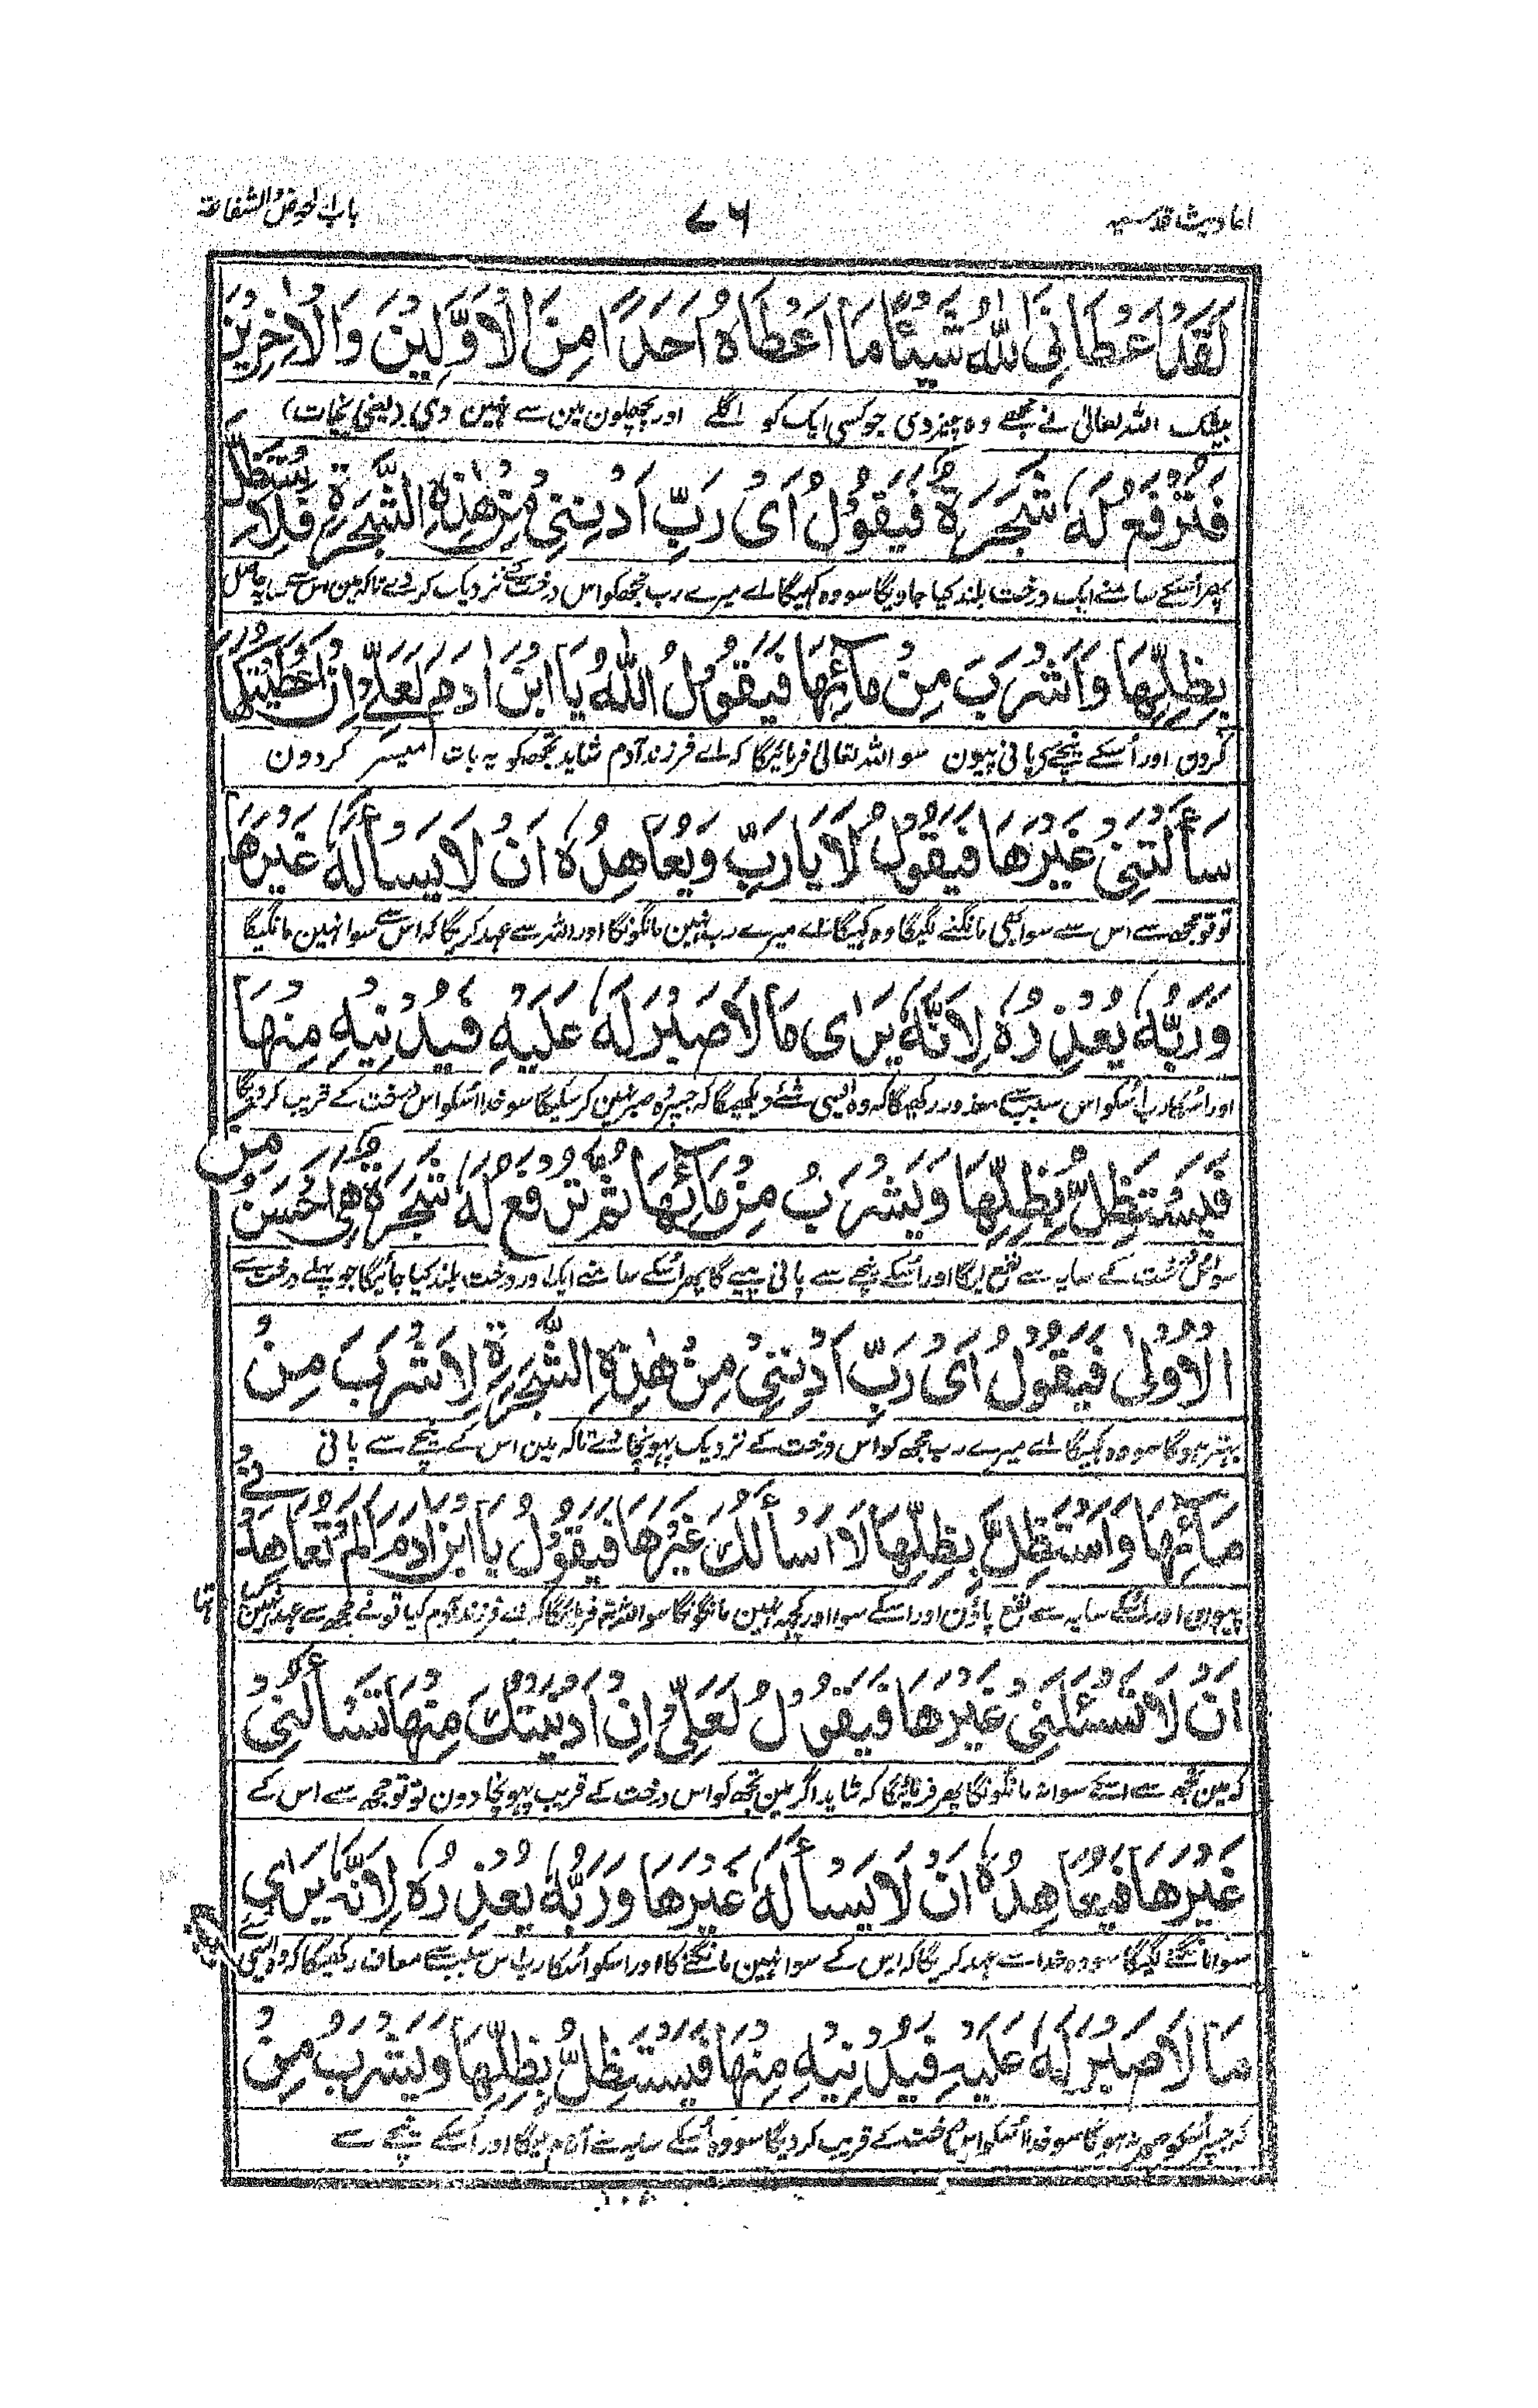 احادیث قدسیہ
۷۶
باب الحوض والشفاعۃ
لَقَدْ اَعْطَانِیَ اللّٰہُ شَیْئًا مَا اَعْطَاہُ اَحَدًا مِنَ الْاَوَّلِیْنَ وَالْاٰخِرِیْنَ
بیشک اللہ تعالیٰ نے مجھے وہ چیز دی جو کسی ایک کو اگلے اور پچھلون مین سے نہین دی (یعنی نجات)
فَتُرْفَعُ لَہٗ شَجَرَۃٌ فَیَقُوْلُ اَیْ رَبِّ اَدْنِنِیْ مِنْ ھٰذِہِ الشَّجَرَۃِ فَلِاَسْتَظِلَّ
پھر اُسکے سامنے ایک درخت بلند کیا جاویگا سو وہ کہیگا اے میرے رب مجھکو اس درخت کے نزدیک کر دے تاکہ مین اس سے سایہ حاصل
بِظِلِّھَا وَاَشْرَبَ مِنْ مَائِھَا فَیَقُوْلُ اللّٰہُ یَا ابْنَ اٰدَمَ لَعَلِّیْ اِنْ اَعْطَیْتُکَھَا
کرون اور اُسکے نیچے پانی پیون سو اللہ تعالیٰ فرمائیگا کہ اے فرزند آدم شاید تجھکو یہ بات میسر کر دون
سَاَلْتَنِیْ غَیْرَھَا فَیَقُوْلُ لَا یَا رَبِّ وَیُعَاھِدُہٗ اَنْ لَا یَسْاَلَہٗ غَیْرَھَا
تو تو مجھ سے اس سے سوا بھی مانگنے لگیگا وہ کہیگا اے میرے رب نہین مانگونگا اور اللہ سے عہد کریگا کہ اس سے سوا نہین مانگیگا
وَرَبُّہٗ یُعْذِرُہٗ لِاَنَّہٗ یَرٰی مَا لَا صَبْرَ لَہٗ عَلَیْہِ فَیُدْنِیْہِ مِنْھَا
اور اُسکا رب اُسکو اس سبب سے معذور رکھیگا کہ وہ ایسی شئے دیکھیگا کہ جسپر وہ صبر نہین کر سکیگا سو خدا اُسکو اس درخت کے قریب کر دیگا
فَیَسْتَظِلُّ بِظِلِّھَا وَیَشْرَبُ مِنْ مَائِھَا ثُمَّ تُرْفَعُ لَہٗ شَجَرَۃٌ ھِیَ اَحْسَنُ مِنَ
سو اس درخت کے سایہ سے نفع لیگا اور اُسکے نیچے سے پانی پیے گا پھر اُسکے سامنے ایک اور درخت بلند کیا جائیگا جو پہلے درخت سے
الْاُوْلٰی فَیَقُوْلُ اَیْ رَبِّ اَدْنِنِیْ مِنْ ھٰذِہِ الشَّجَرَۃِ لِاَشْرَبَ مِنْ
بہتر ہوگا سو وہ کہیگا اے میرے رب مجھ کو اس درخت کے نزدیک پہونچا دے تاکہ مین اس کے نیچے سے پانی
مَائِھَا وَاَسْتَظِلَّ بِظِلِّھَا لَا اَسْاَلُکَ غَیْرَھَا فَیَقُوْلُ یَا ابْنَ اٰدَمَ اَلَمْ تُعَاھِدْنِیْ
پیون اور اسکے سایہ سے نفع پاؤن اور اسکے سوا اور کچھ نہین مانگونگا سو اللہ فرمائیگا کہ اے فرزند آدم کیا تونے مجھ سے عہد نہین کیا تھا
اَنْ لَا تَسْئَلَنِیْ غَیْرَھَا فَیَقُوْلُ لَعَلِّیْ اِنْ اَدْنَیْتُکَ مِنْھَا تَسْاَلُنِیْ
کہ مین تجھ سے اسکے سوا نہ مانگونگا پھر فرمائیگا کہ شاید اگر مین تجھ کو اس درخت کے قریب پہونچا دون تو تو مجھ سے اس کے
غَیْرَھَا فَیُعَاھِدُہٗ اَنْ لَا یَسْاَلَہٗ غَیْرَھَا وَرَبُّہٗ یُعْذِرُہٗ لِاَنَّہٗ یَرٰی
سوا مانگنے لگیگا سو وہ خدا سے عہد کریگا کہ اس کے سوا نہین مانگنے کا اور اسکو اُسکا رب اس سبب سے معاف رکھیگا کہ وہ ایسی
مَا لَا صَبْرَ لَہٗ عَلَیْہِ فَیُدْنِیْہِ مِنْھَا فَیَسْتَظِلُّ بِظِلِّھَا وَیَشْرَبُ مِنْ
کہ جسپر اُسکو صبر نہ ہوگا سو خدا اُسکو اس درخت کے قریب کر دیگا سو وہ اُسکے سایہ سے آرام لیگا اور اُسکے نیچے سے